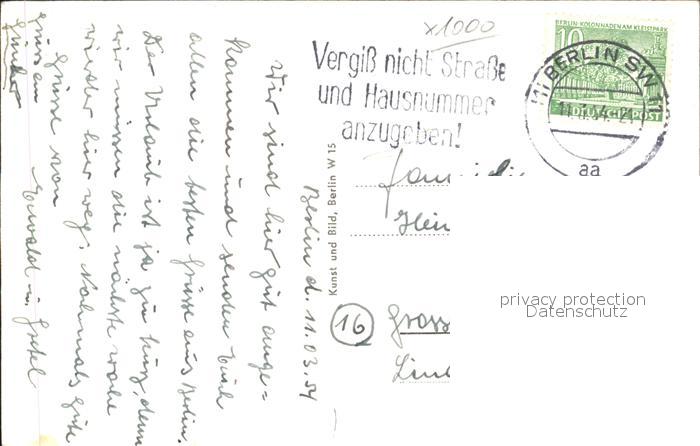 x1000
Vergiß nicht Straße
und Hausnummer
anzugeben!
BERLIN-KOLONNADEN AM KLEISTPARK
10
DEUTSCHE POST
(1) BERLIN SW 11
11.3.54.-21
aa
Berlin d. 11.03.54
Wir sind hier gut ange=
kommen und senden Euch
allen die besten Grüsse aus Berlin.
Der Urlaub ist ja zu kurz, denn
wir müssen die nächste Woche
wieder hier weg. Nochmals gute
Grüsse von
Ewald u. Gretel
Gruss an
Günter
Kunst und Bild, Berlin W 15
Familie
Hein
(16) Gross
Lind
privacy protection
Datenschutz